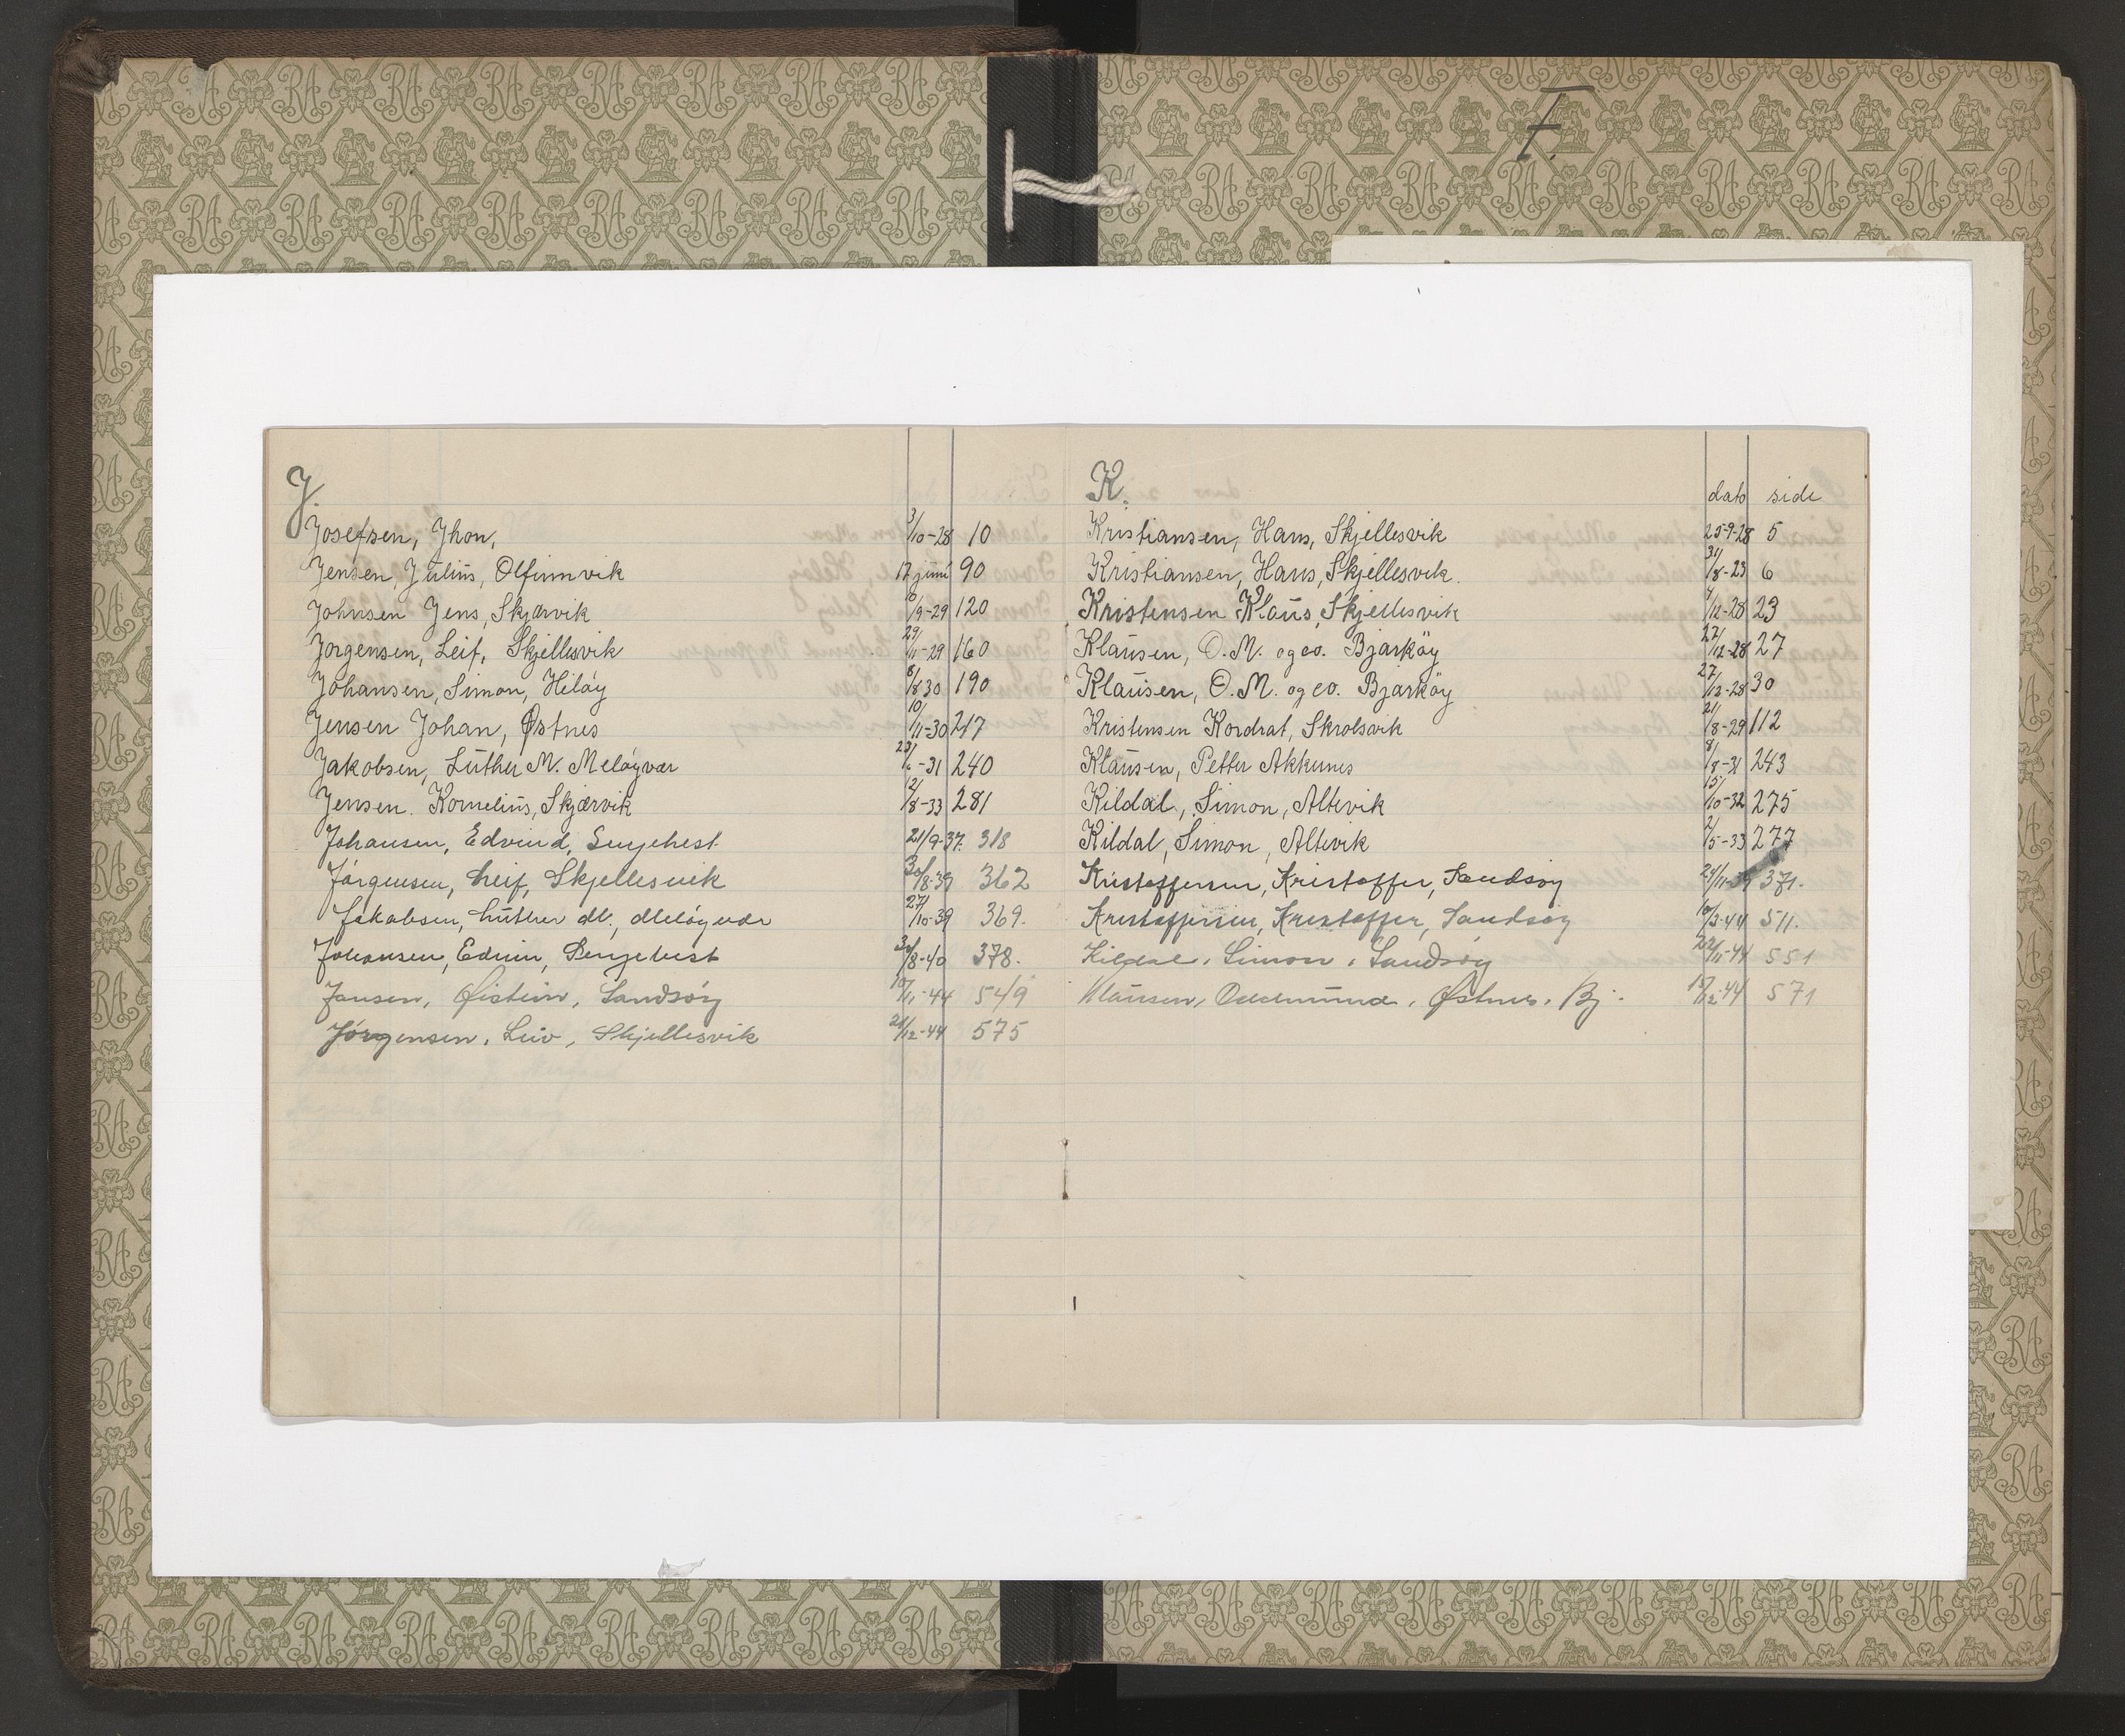 F.
J.
Josefsen, Jhon, 3/10-28 10
Jensen, Julius, Olfinnvik 17 juni 90
Johnsen Jens, Skjærvik /9-29 120
Jørgensen, Leif, Skjellesvik 29/11-29 160
Johansen, Simon, Helöy 8/8 30 190
Jensen Johan, Østnes 10/11-30 217
Jakobsen, Luther M. Melöyvær 23/6-31 240
Jensen. Kornelius, Skjærvik 2/8-33 281
Johansen, Edvind, Senjehest 21/9-37. 318
Jörgensen, Leif, Skjellesvik 30/8-39 362
Jakobsen, Luther M., Melöyvær 27/10-39 369.
Johansen, Edvin, Senjehest 30/8-40 378.
Jansen, Øistein, Sandsöy 10/11-44 549
Jörgensen, Leiv, Skjellesvik 21/12-44 575
K. dato side
Kristiansen, Hans, Skjellesvik 25-9-28 5
Kristiansen, Hans, Skjellesvik. 31/8-23 6
Kristensen Klaus, Skjellesvik /12-28 23
Klausen, O.M. og co. Bjarköy 27/12-28 27
Klausen, O.M. og co. Bjarköy 27/12-28 30
Kristensen Kordrat, Skrolsvik 21/8-29 112
Klausen, Petter Akkenes 8/8-31 243
Kildal, Simon, Altevik 15/10-32 275
Kildal, Simon, Altevik 2/5-33 277
Kristoffersen, Kristoffer, Sandsöy 24/11-39 371.
Kristoffersen, Kristoffer, Sandsöy 10/3-44 511.
Kildal, Simon, Sandsöy 22/11-44 551
Klausen, Oddmund, Østnes, Bj. 15/12-44 571